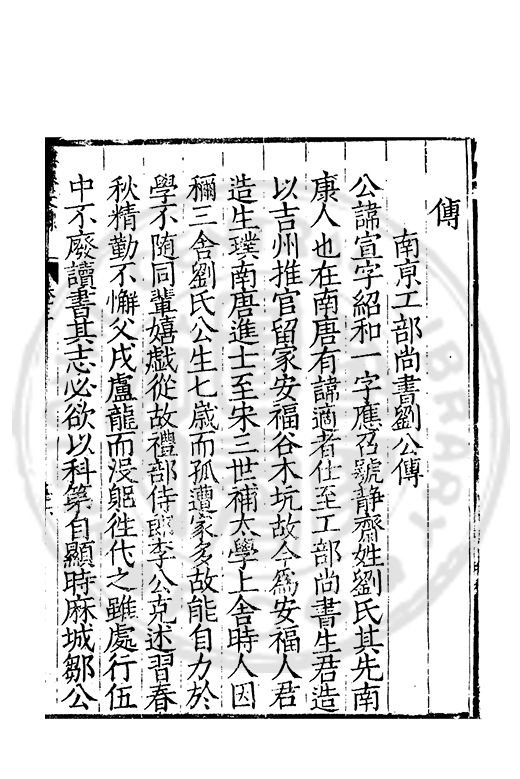 傳
南京工部尚書劉公傳
公諱宣字紹和一字應召號静齋姓劉氏其先南
康人也在南唐有諱適者仕至工部尚書生君造
以吉州推官留家安福谷木坑故今爲安福人君
造生璞南唐進士至宋三世補太學上舍時人因
稱三舍劉氏公生七歲而孤遭家多故能自力於
學不随同輩嬉戲從故禮部侍郎李公克述習春
秋精勤不懈父戍盧龍而没躬徃代之雖處行伍
中不廢讀書其志必欲以科第自顯時麻城鄒公